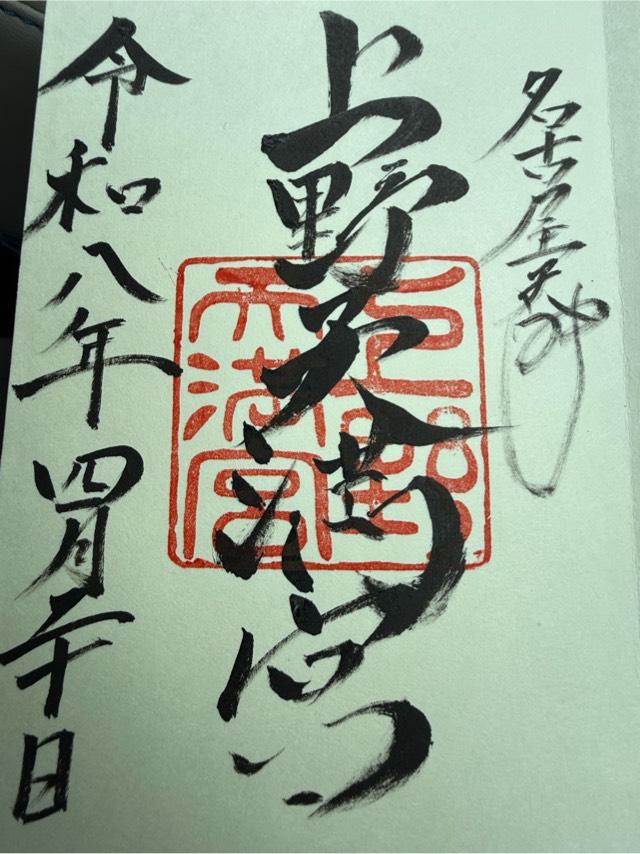 名古屋天神
上野天満宮
上野
天満宮
令和八年 四月二十日